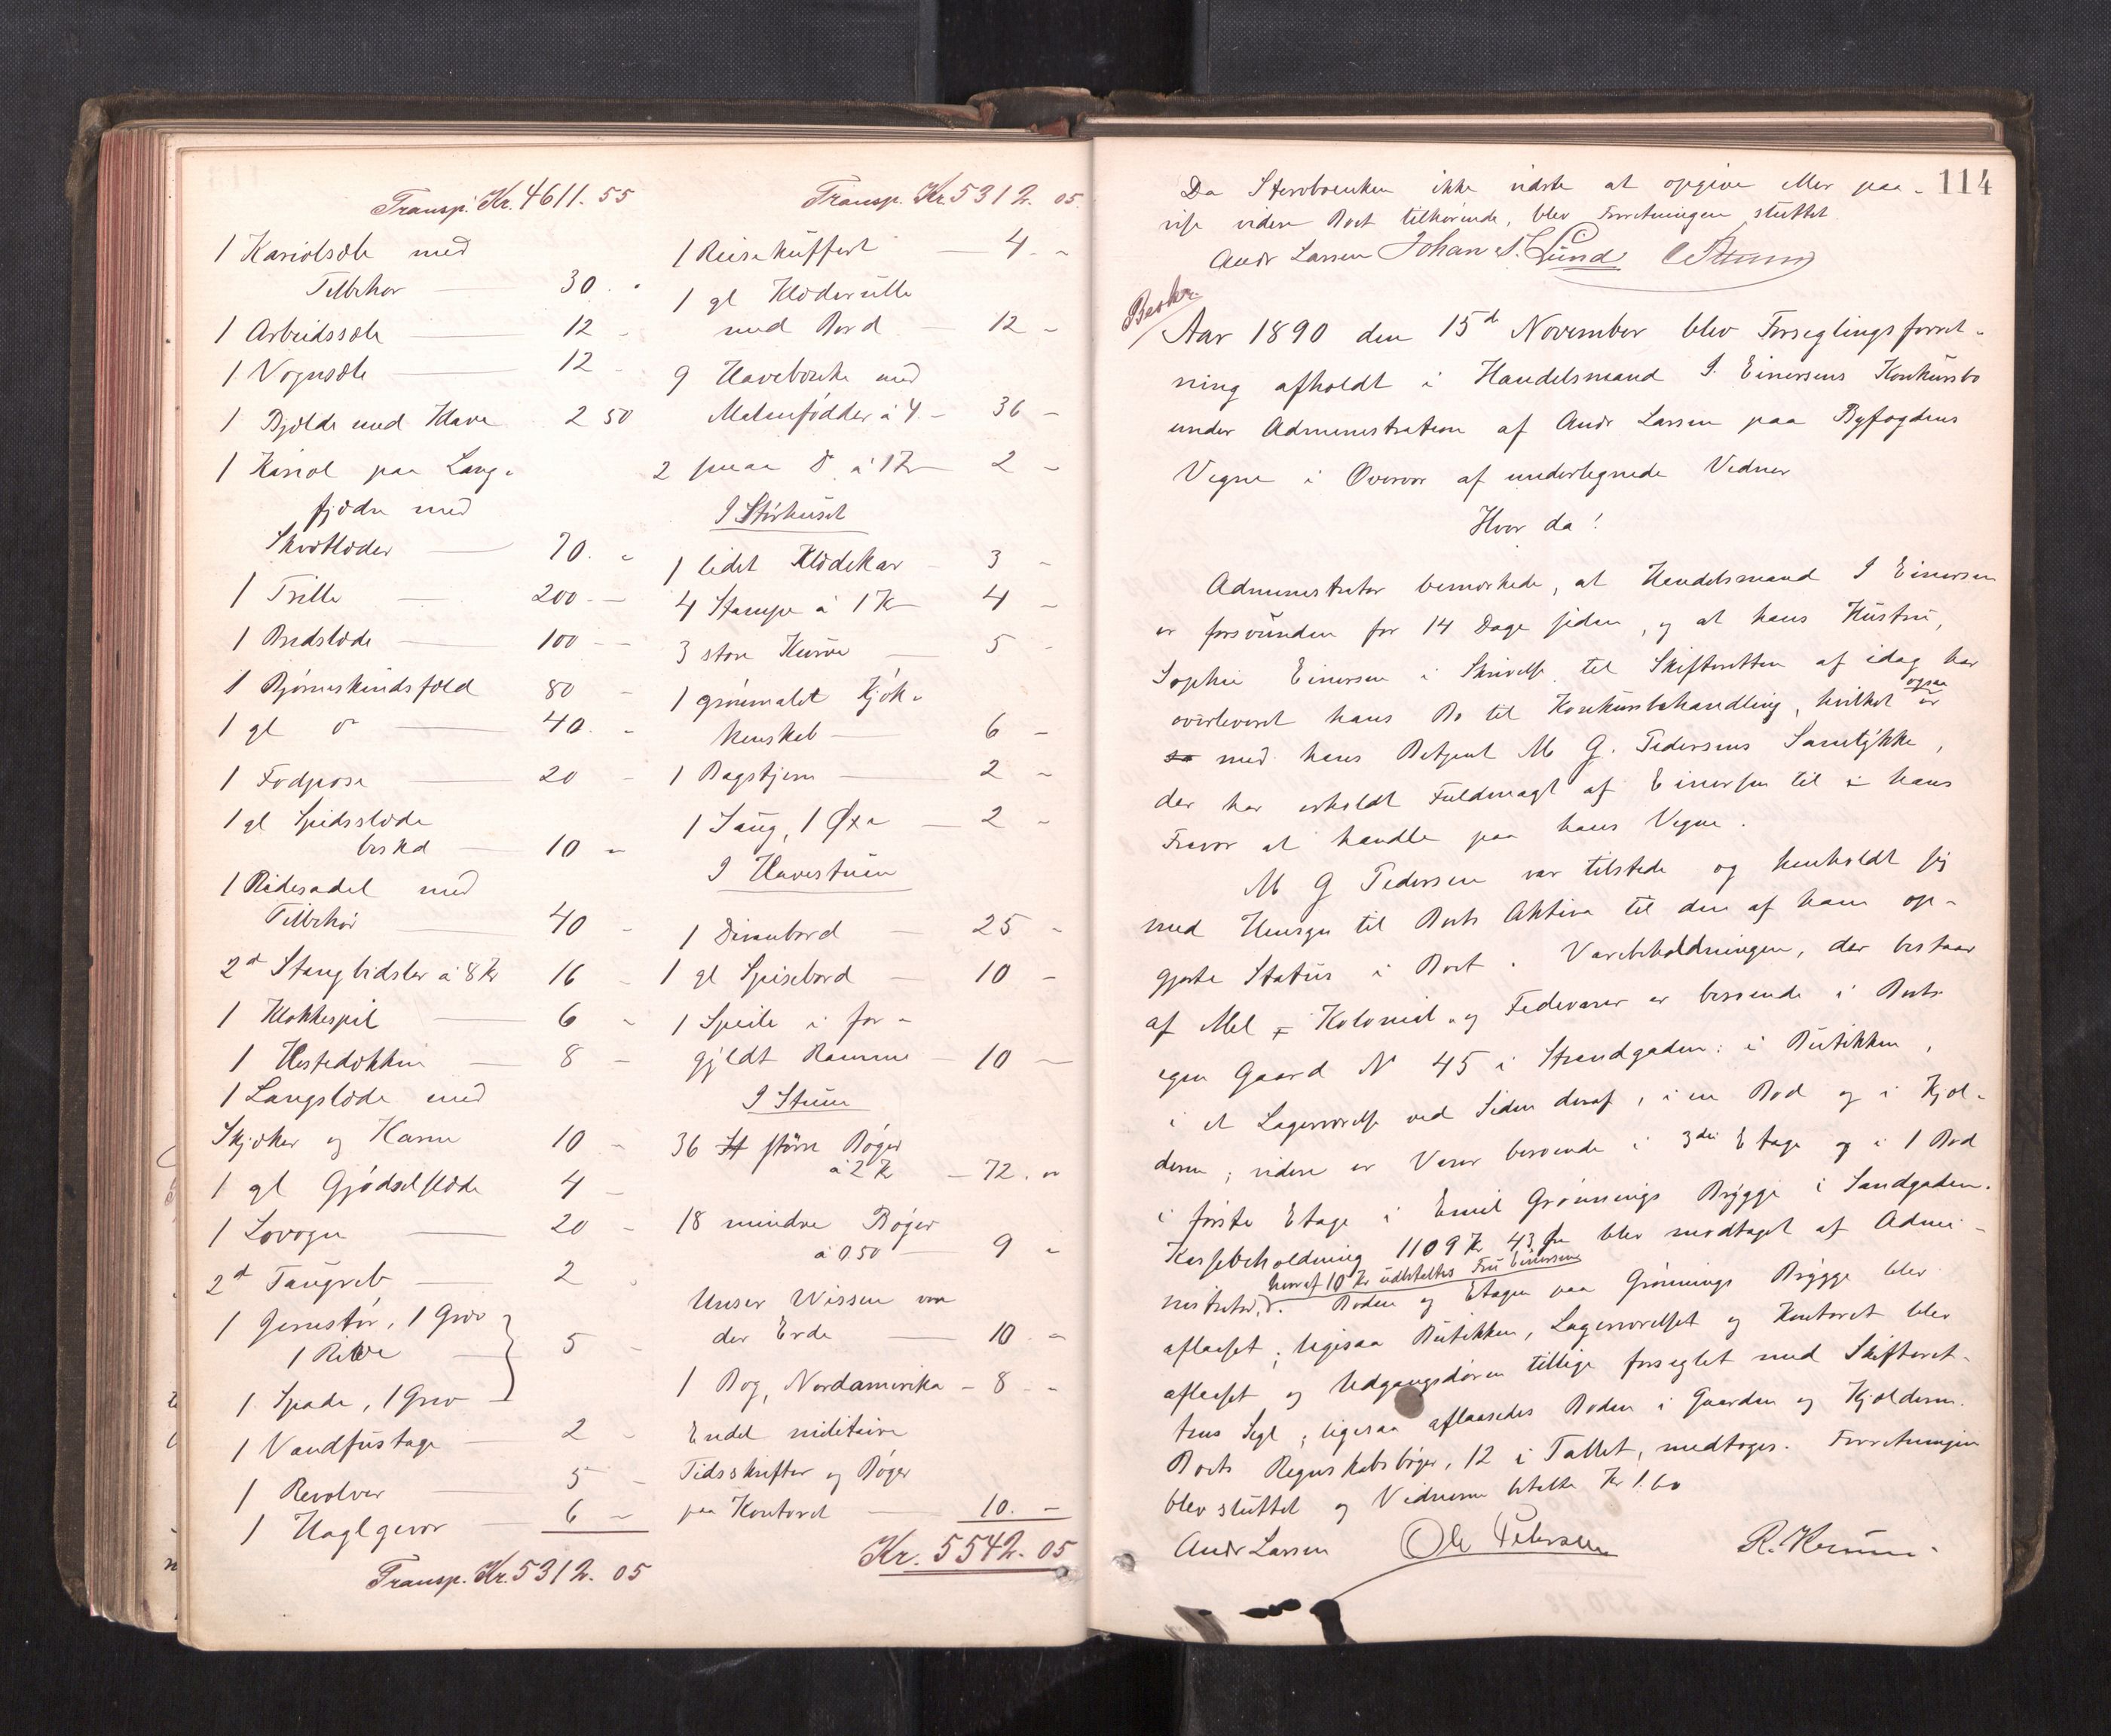 Transp. Kr. 4611. 55
1 Kariolsæle med
Tilbehør — 30. "
1 Arbeidssæle — 12 -
1 Vognsæle — 12 -
1 Bjælde med Klave 2 50
1 Kariol paa Lang-
fjædre med
Skvætlæder — 70. -
1 Trille — 200 -
1 Bredslæde — 100 -
1 Bjørneskindsfæld 80 -
1 gl do — 40. -
1 Fodpose — 20 -
1 gl Spidsslæde
beskd — 10 -
1 Ridesadel med
Tilbehør — 40 -
2 d Stangbidsler à 8 Kr 16 -
1 Klokkespil — 6 -
1 Hestedækken — 8 -
1 Langslæde med
Skjæker og Karm 10 -
1 gl Gjødselslæde 4 -
1 Lovogn — 20 -
2 d Taugreb — 2 -
1 Jernstør, 1 Grev
1 Rive — 5 -
1 Spade, 1 Grev
1 Vandfustage — 2 -
1 Revolver — 5 -
1 Haglgevær — 6 -
Transp. Kr. 5312. 05
Transp. Kr. 5312. 05
1 Reisekuffert — 4 -
1 gl Klæderulle
med Bord — 12 -
9 Havebænke med
Metalfødder à 4 - 36 -
2 smaa do à 1 Kr 2 -
I Størhuset
1 lidet Klædekar - 3 -
4 Stampe à 1 Kr 4 -
3 store Kurve — 5 -
1 grønmalet Kjøk-
kenskab — 6 -
1 Bagstjern — 2 -
1 Saug, 1 Øxe — 2 -
I Havestuen
1 Divanbord — 25 -
1 gl Spisebord — 10 -
1 Speile i for-
gyldt Ramme — 10 -
I Stuen
36 St større Bøger
à 2 Kr — 72. "
18 mindre Bøger
à 0.50 — 9 -
Unser Wissen von
der Erde — 10. -
1 Bog, Nordamerika - 8 -
Endel militaire
Tidsskrifter og Bøger
paa Kontoret — 10. -
Kr. 5542. 05
114
Da Stervboenken ikke vidste at opgive eller paa-
vise videre Boet tilhørende, blev Forretningen sluttet.
Andr Larsen Johan S. Lund
Beskr.
Aar 1890 den 15de November blev Forseglingsforret-
ning afholdt i Handelsmand I. Einersens Konkursbo
under Administration af Andr Larsen paa Byfogdens
Vegne i Overvær af undertegnede Vidner
Hvor da!
Administrator bemærkede, at Handelsmand I Einersen
er forsvunden for 14 Dage siden, og at hans Hustru,
Sophie Einersen i Skrivelse til Skifteretten af idag har
overleveret hans Bo til Konkursbehandling, hvilket ogsaa er
sa med hans Betjent M G. Pedersens Samtykke,
der har erholdt Fuldmagt af Einersen til i hans
Fravær at handle paa hans Vegne.
M G Pedersen var tilstede og henholdt sig
med Hensyn til Boets Aktiva til den af ham op-
gjorte Status i Boet. Varebeholdningen, der bestaar
af Mel, Kolonial- og Fedevarer er beroende i Boets
egen Gaard No 45 i Strandgaden: i Butikken,
i et Lagerværelse ved Siden deraf, i en Bod og i Kjel-
deren; videre er Varer beroende i 3die Etage og i 1 Bod
i første Etage i Emil Grønnings Brygge i Sandgaden.
Kassebeholdning 1109 Kr 43 Øre blev modtaget af Admi-
hvoraf 10 Kr udbetaltes Fru Einersen
nistrator. Boden og Etagen paa Grønnings Brygge blev
aflaaset; ligesaa Butikken, Lagerværelset og Kontoret blev
aflaaset og Udgangsdøren tillige forseglet med Skifteret-
tens Segl; ligesaa aflaasedes Boden i Gaarden og Kjælderen.
Boets Regnskabsbøger, 12 i Tallet, medtoges. Forretningen
blev sluttet og Vidnerne betalte Kr 1.60
Andr Larsen Ole Petersen